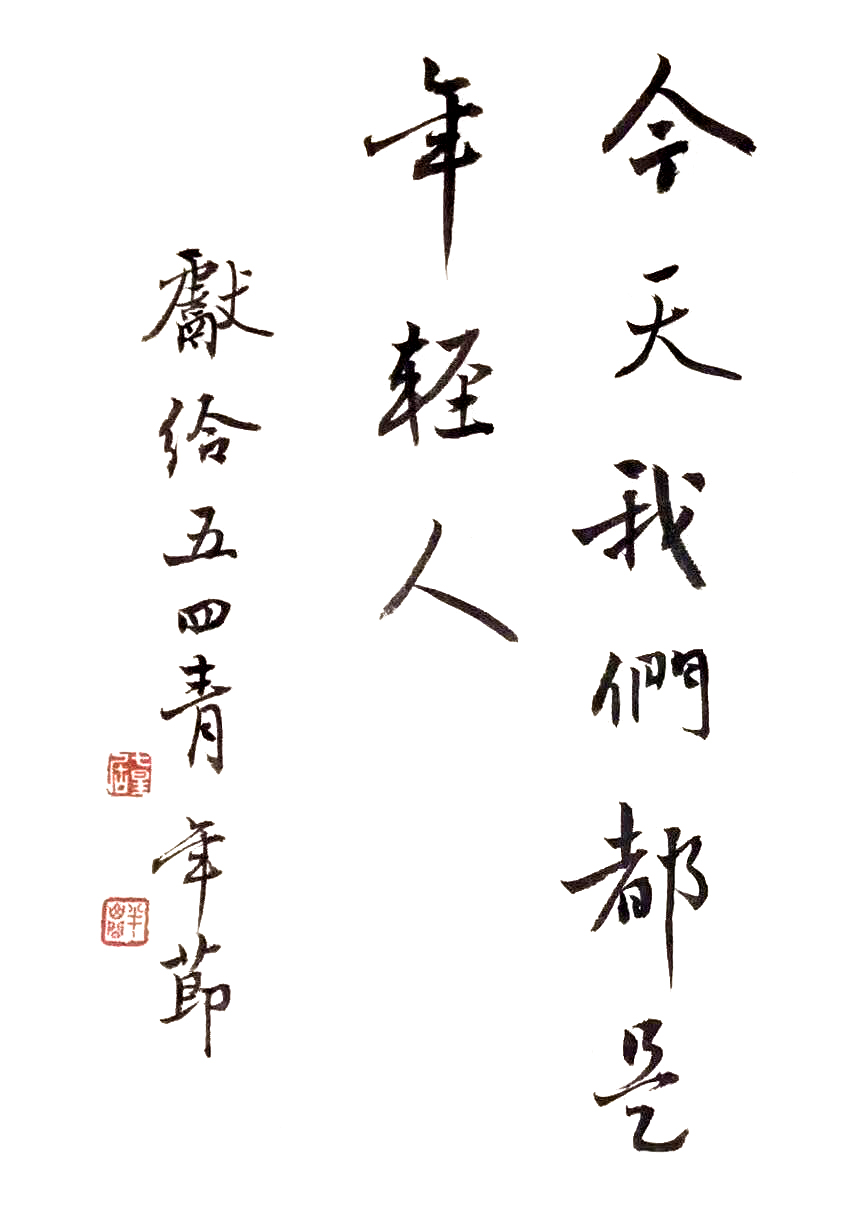 今天我們都是
年輕人
獻給五四青年節